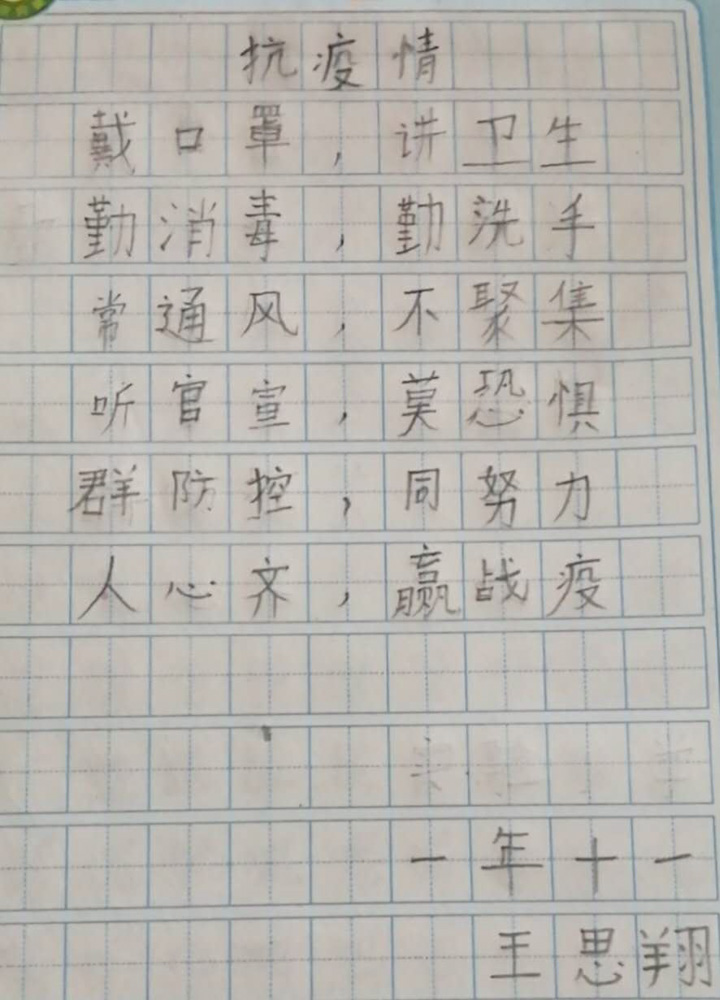 抗疫情
戴口罩，讲卫生
勤消毒，勤洗手
常通风，不聚集
听官宣，莫恐惧
群防控，同努力
人心齐，赢战疫
一年十一
王思翔